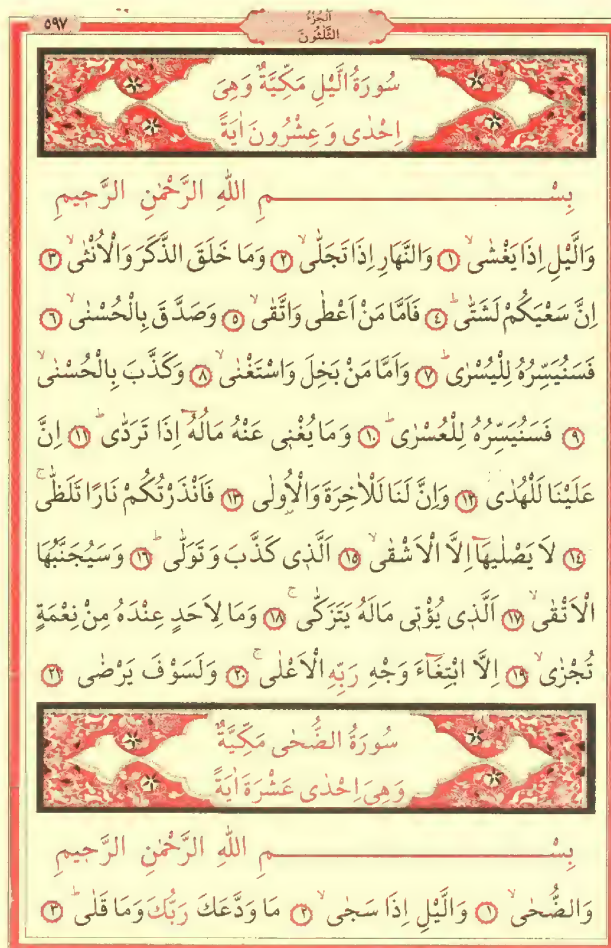 ٥٩٧
اَلْجُزْءُ
الثَّلٰثُونَ
سُورَةُ الَّيْلِ مَكِّيَّةٌ وَهِىَ
اِحْدٰى وَعِشْرُونَ اٰيَةً
بِسْمِ اللّٰهِ الرَّحْمٰنِ الرَّحٖيمِ
وَالَّيْلِ اِذَا يَغْشٰىۙ ﴿١﴾ وَالنَّهَارِ اِذَا تَجَلّٰىۙ ﴿٢﴾ وَمَا خَلَقَ الذَّكَرَ وَالْاُنْثٰىۙ ﴿٣﴾
اِنَّ سَعْيَكُمْ لَشَتّٰىؕ ﴿٤﴾ فَاَمَّا مَنْ اَعْطٰى وَاتَّقٰىۙ ﴿٥﴾ وَصَدَّقَ بِالْحُسْنٰىۙ ﴿٦﴾
فَسَنُيَسِّرُهُ لِلْيُسْرٰىؕ ﴿٧﴾ وَاَمَّا مَنْ بَخِلَ وَاسْتَغْنٰىۙ ﴿٨﴾ وَكَذَّبَ بِالْحُسْنٰىۙ
﴿٩﴾ فَسَنُيَسِّرُهُ لِلْعُسْرٰىؕ ﴿١٠﴾ وَمَا يُغْنٖى عَنْهُ مَالُهُٓ اِذَا تَرَدّٰىؕ ﴿١١﴾ اِنَّ
عَلَيْنَا لَلْهُدٰى ﴿١٢﴾ وَاِنَّ لَنَا لَلْاٰخِرَةَ وَالْاُولٰى ﴿١٣﴾ فَاَنْذَرْتُكُمْ نَارًا تَلَظّٰىۚ
﴿١٤﴾ لَا يَصْلٰيهَٓا اِلَّا الْاَشْقٰىۙ ﴿١٥﴾ اَلَّذٖى كَذَّبَ وَتَوَلّٰىؕ ﴿١٦﴾ وَسَيُجَنَّبُهَا
الْاَتْقٰىۙ ﴿١٧﴾ اَلَّذٖى يُؤْتٖى مَالَهُ يَتَزَكّٰىۚ ﴿١٨﴾ وَمَا لِاَحَدٍ عِنْدَهُ مِنْ نِعْمَةٍ
تُجْزٰىۙ ﴿١٩﴾ اِلَّا ابْتِغَٓاءَ وَجْهِ رَبِّهِ الْاَعْلٰىۚ ﴿٢٠﴾ وَلَسَوْفَ يَرْضٰى ﴿٢١﴾
سُورَةُ الضُّحٰى مَكِّيَّةٌ
وَهِىَ اِحْدٰى عَشْرَةَ اٰيَةً
بِسْمِ اللّٰهِ الرَّحْمٰنِ الرَّحٖيمِ
وَالضُّحٰىۙ ﴿١﴾ وَالَّيْلِ اِذَا سَجٰىۙ ﴿٢﴾ مَا وَدَّعَكَ رَبُّكَ وَمَا قَلٰىؕ ﴿٣﴾